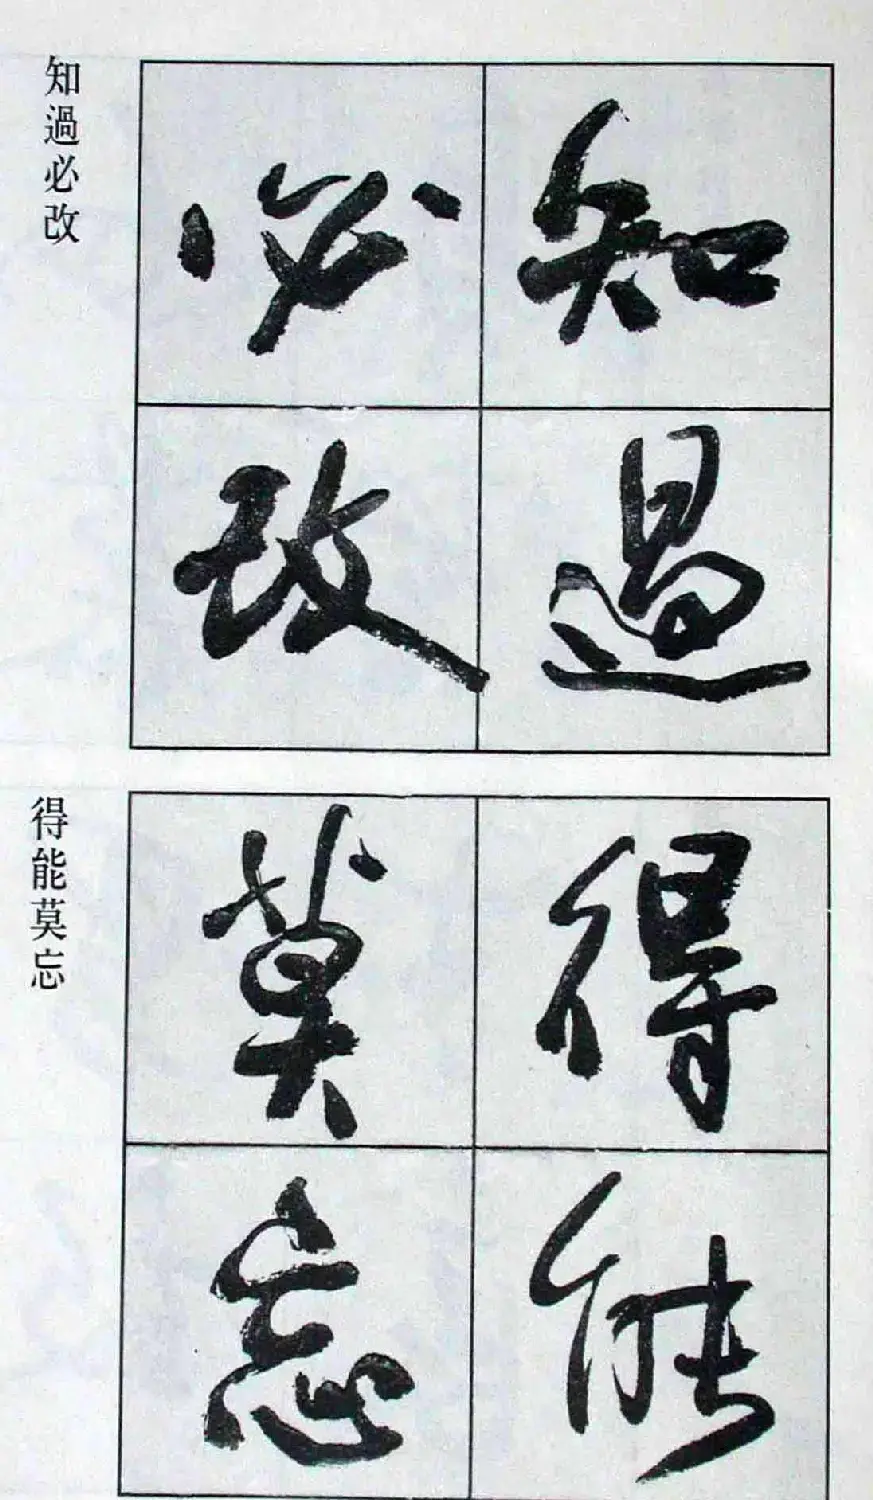 知過必改
知過
必改
得能莫忘
得能
莫忘